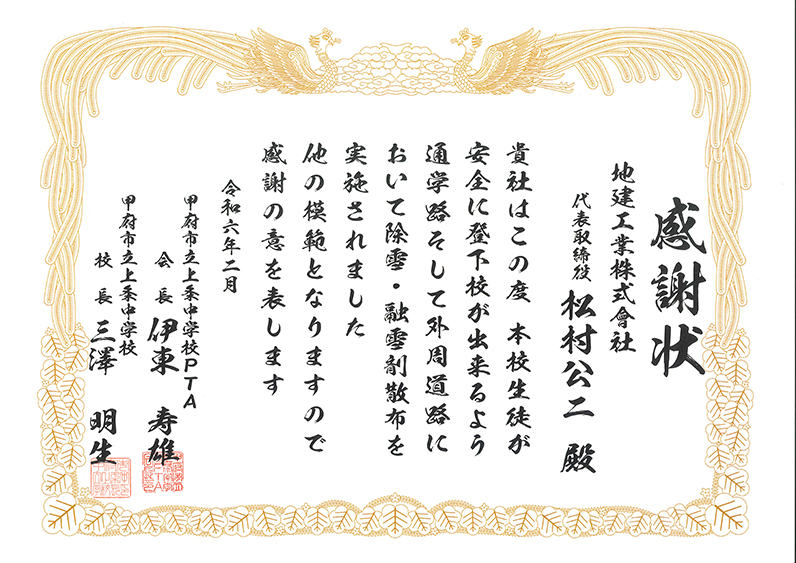 感謝状
地建工業株式會社
代表取締役 松村公二 殿
貴社はこの度 本校生徒が
安全に登下校が出来るよう
通学路そして外周道路に
おいて除雪・融雪剤散布を
実施されました
他の模範となりますので
感謝の意を表します
令和六年二月
甲府市立上条中学校PTA
会長 伊東 寿雄
甲府市立上条中学校
校長 三澤 明生